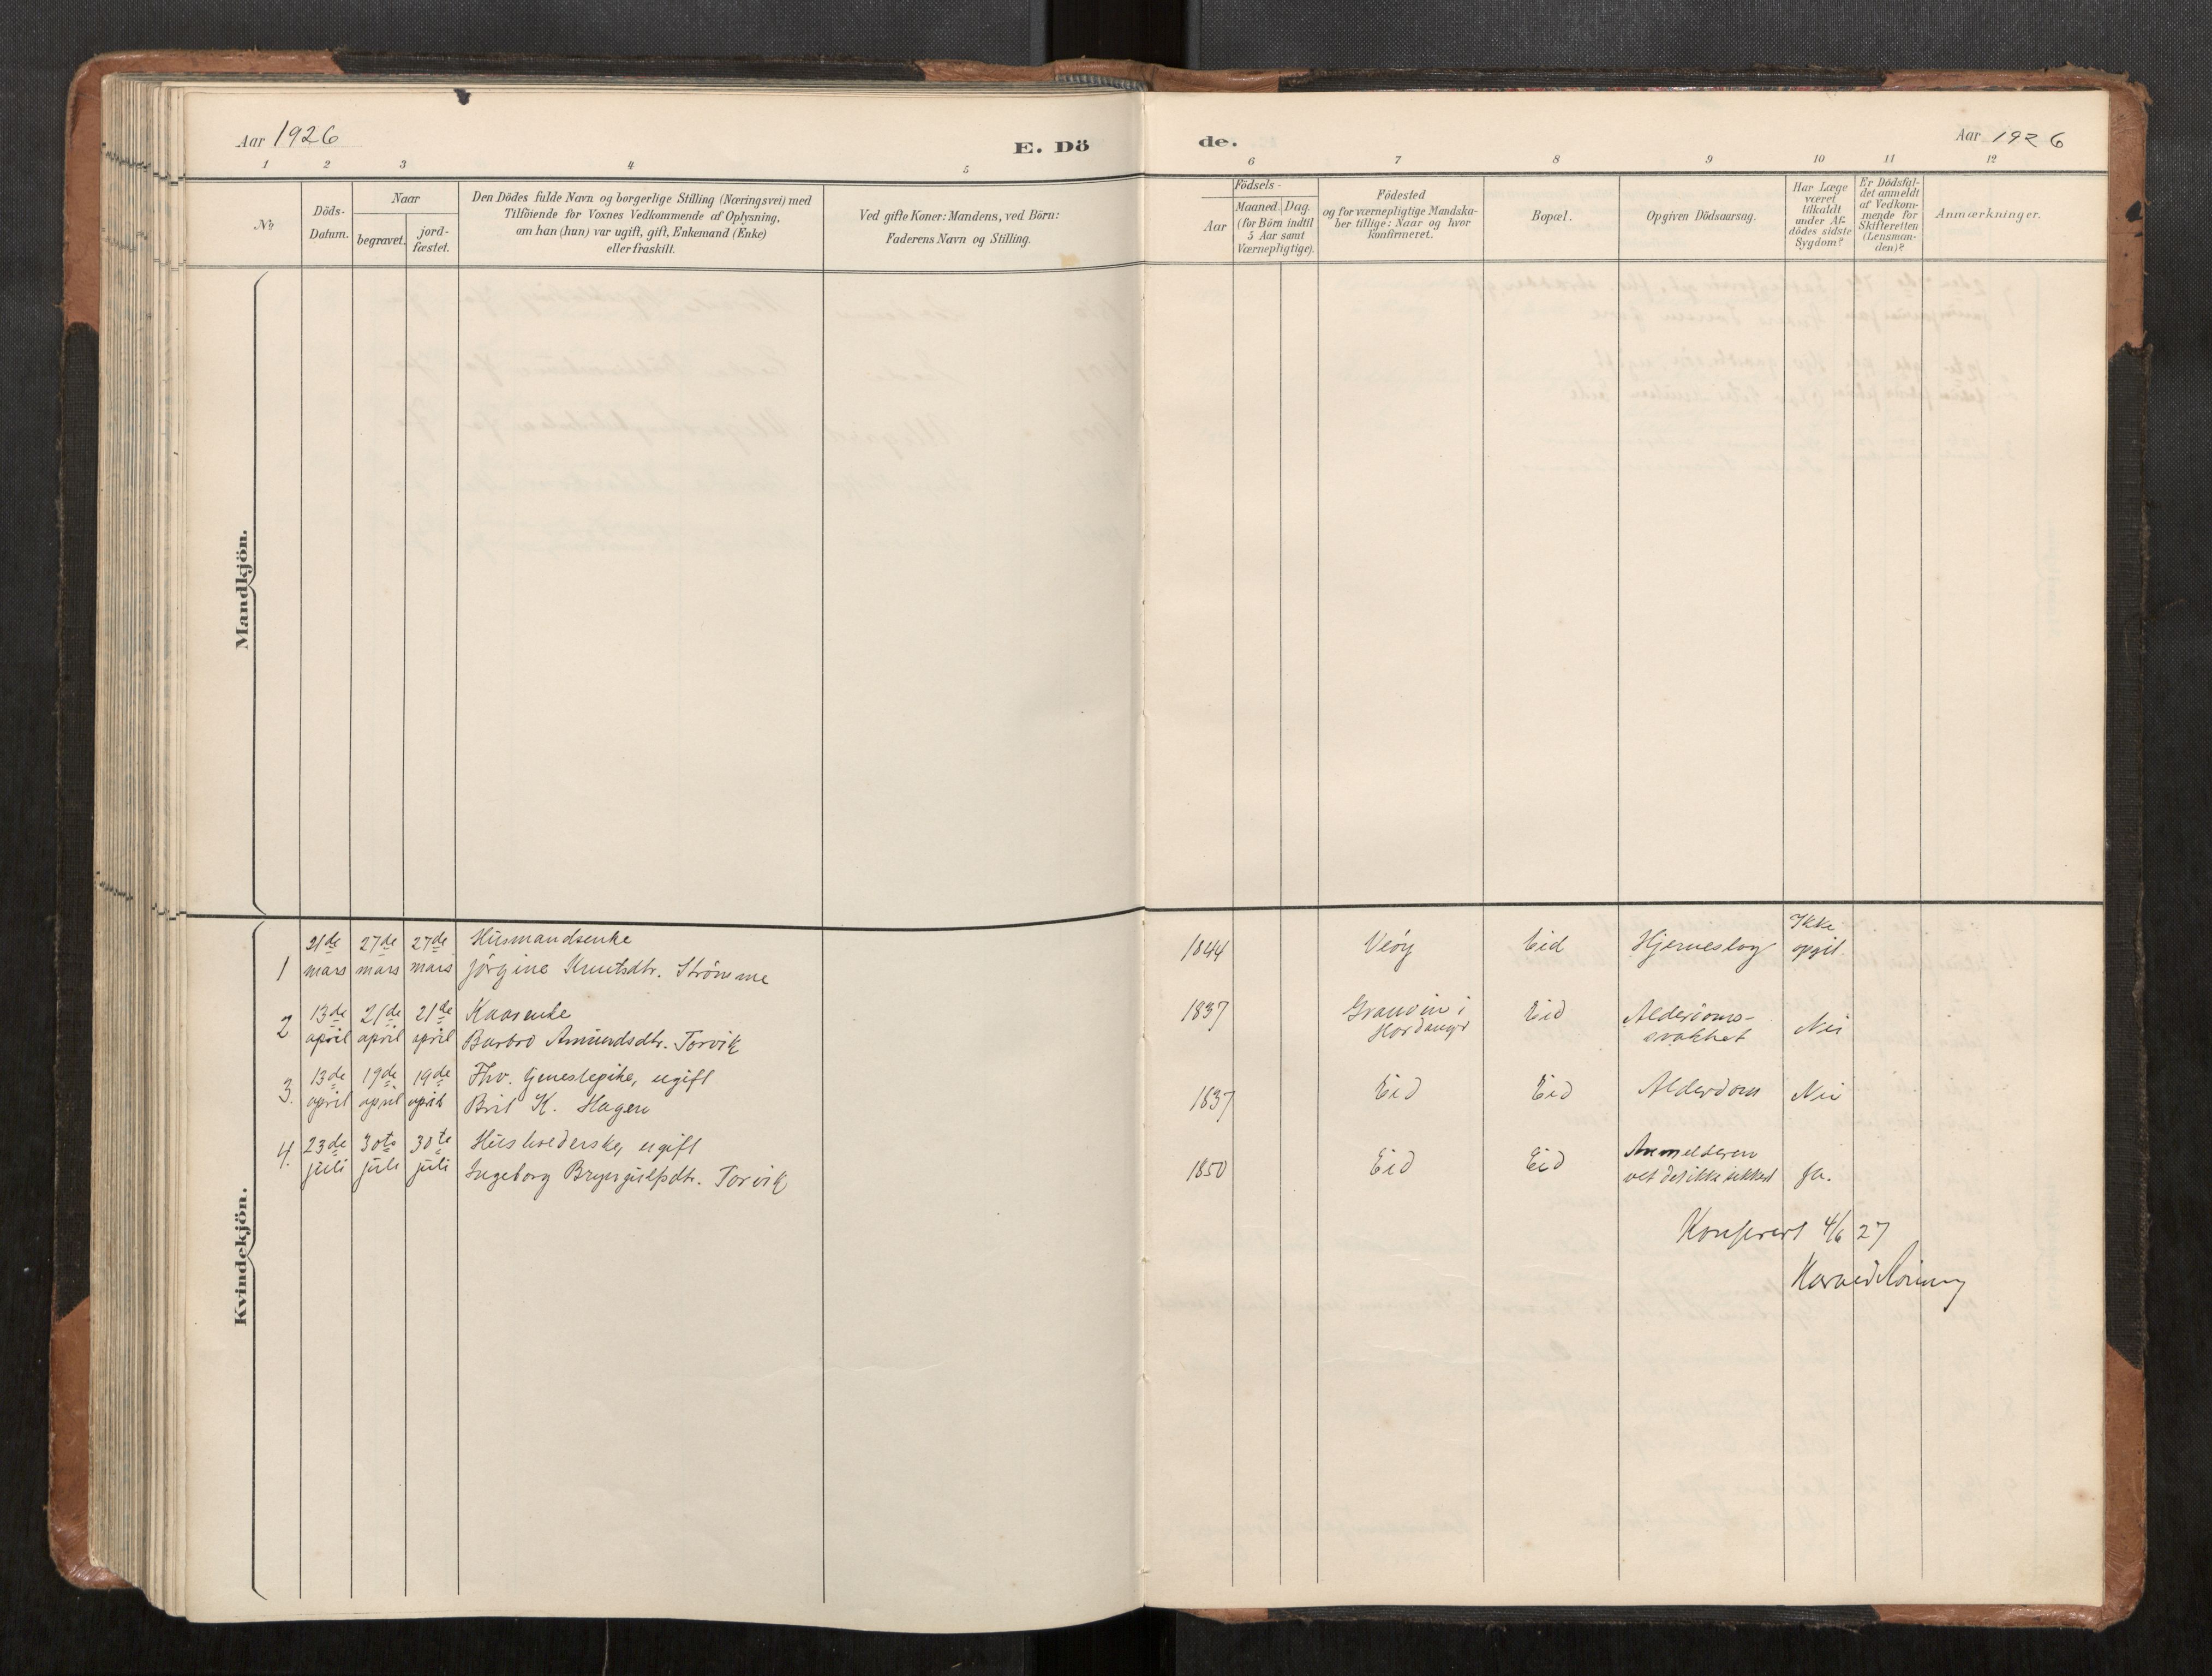 Aar 1926
E. Dö
de.
Aar 1926
1 2 3 4 5 6 7 8 9 10 11 12
No
Döds-
Datum.
Naar
begravet.
jord-
fæstet.
Den Dödes fulde Navn og borgerlige Stilling (Næringsvei) med
Tilföiende for Voxnes Vedkommende af Oplysning,
om han (hun) var ugift, gift, Enkemand (Enke)
eller fraskilt.
Ved gifte Koner: Mandens, ved Börn:
Faderens Navn og Stilling.
Födsels-
Aar
Maaned. Dag.
(for Börn indtil
5 Aar samt
Værnepligtige).
Födested
og for værnepligtige Mandska-
ber tillige: Naar og hvor
konfirmeret.
Bopæl.
Opgiven Dödsaarsag.
Har Læge
været
tilkaldt
under Af-
dödes sidste
Sygdom?
Er Dödsfal-
det anmeldt
af Vedkom-
mende for
Skifteretten
(Lensman-
den)?
Anmærkninger.
Mandkjön.
Kvindekjön.
21de 27de 27de Husmandsenke
1 mars mars mars Jørgine Knutsdtr. Strømme
1844 Veøy Eid Hjerneslag Ikke
opgit.
13de 21de 21de Kaarenke
2 april april april Barbro Amundsdtr. Torvik
1837 Granvin i
Hardanger
Eid Alderdoms-
svakhet
Nei
13de 19de 19de Fhv. tjenestepike, ugift
3. april april april Brit K. Hagen
1837 Eid Eid Alderdom Nei
4. 23de 30te 30te Husholderske, ugift
juli juli juli Ingeborg Bryngjulfsdtr. Torvik
1850 Eid Eid Anmelderen
vet det ikke sikkert
Ja.
Konferert 4/6 27